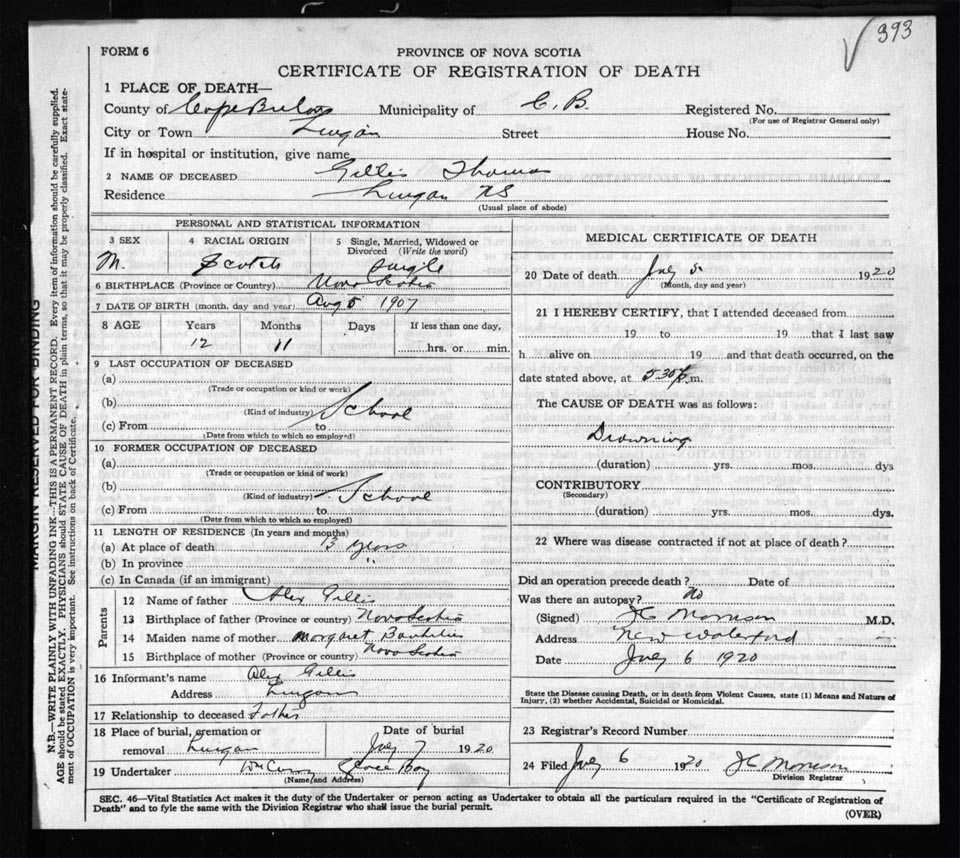 393
FORM 6
PROVINCE OF NOVA SCOTIA
CERTIFICATE OF REGISTRATION OF DEATH
1 PLACE OF DEATH—
County of Cape Breton Municipality of C. B. Registered No.
(For use of Registrar General only)
City or Town Lingan Street House No.
If in hospital or institution, give name
2 NAME OF DECEASED Gillis Thomas
Residence Lingan N S
(Usual place of abode)
PERSONAL AND STATISTICAL INFORMATION
3 SEX 4 RACIAL ORIGIN 5 Single, Married, Widowed or Divorced (Write the word)
M. Scotch Single
6 BIRTHPLACE (Province or Country) Nova Scotia
7 DATE OF BIRTH (month, day and year) Aug 5 1907
8 AGE Years Months Days If less than one day,
12 11 hrs. or min.
9 LAST OCCUPATION OF DECEASED
(a)
(Trade or occupation or kind of work)
(b) School
(Kind of industry)
(c) From to
(Date from which to which so employed)
10 FORMER OCCUPATION OF DECEASED
(a)
(Trade or occupation or kind of work)
(b) School
(Kind of industry)
(c) From to
(Date from which to which so employed)
11 LENGTH OF RESIDENCE (In years and months)
(a) At place of death 13 years
(b) In province "
(c) In Canada (if an immigrant)
Parents
12 Name of father Alex Gillis
13 Birthplace of father (Province or country) Nova Scotia
14 Maiden name of mother Margaret
15 Birthplace of mother (Province or country) Nova Scotia
16 Informant's name Alex Gillis
Address Lingan
17 Relationship to deceased Father
18 Place of burial, cremation or removal Lingan
Date of burial July 7 1920
19 Undertaker Wm Curry Glace Bay
(Name and Address)
MEDICAL CERTIFICATE OF DEATH
20 Date of death July 5. 1920
(Month, day and year)
21 I HEREBY CERTIFY, that I attended deceased from
19 to 19 that I last saw
h alive on 19 and that death occurred, on the
date stated above, at 5 30 p.m.
The CAUSE OF DEATH was as follows:
Drowning
(duration) yrs. mos. dys
CONTRIBUTORY
(Secondary)
(duration) yrs. mos. dys.
22 Where was disease contracted if not at place of death?
Did an operation precede death? Date of
Was there an autopsy? No
(Signed) J C Morrison M.D.
Address New Waterford
Date July 6 1920
State the Disease causing Death, or in death from Violent Causes, state (1) Means and Nature of
Injury, (2) whether Accidental, Suicidal or Homicidal.
23 Registrar's Record Number
24 Filed July 6 1920 J C Morrison
Division Registrar
SEC. 46—Vital Statistics Act makes it the duty of the Undertaker or person acting as Undertaker to obtain all the particulars required in the "Certificate of Registration of
Death" and to fyle the same with the Division Registrar who shall issue the burial permit.
(OVER)
MARGIN RESERVED FOR BINDING
N.B.—WRITE PLAINLY WITH UNFADING INK—THIS IS A PERMANENT RECORD. Every item of information should be carefully supplied.
AGE should be stated EXACTLY. PHYSICIANS should STATE CAUSE OF DEATH in plain terms, so that it may be properly classified. Exact state-
ment of OCCUPATION is very important. See instructions on back of Certificate.